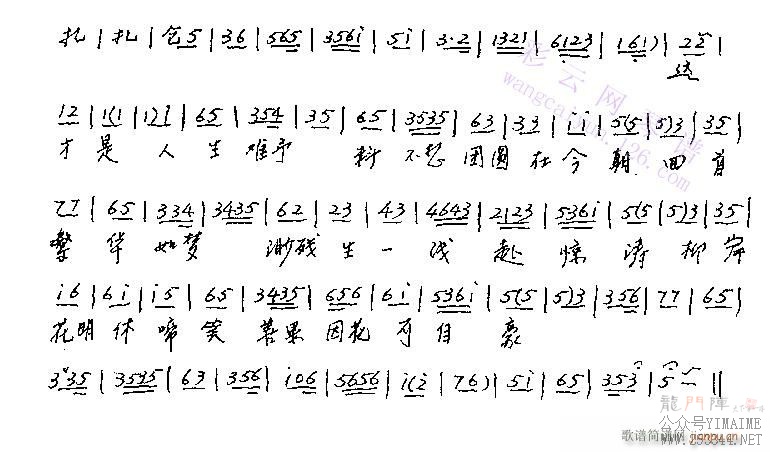 扎 | 扎 | 仓5 | 36 | 565 | 356i | 5i | 3·2 | 1321 | 6123 | 161) | 22 |
这
12 | 1(1 | 1)1 | 65 | 354 | 35 | 65 | 3535 | 63 | 33 | ii | 5(5 | 5)3 | 35 |
才是人生难予料不想团圆在今朝回首
77 | 65 | 334 | 3435 | 62 | 23 | 43 | 4643 | 2123 | 536i | 5(5 | 5)3 | 35 |
繁华如梦渺残生一线赴惊涛柳岸
i6 | 6i | i5 | 65 | 3435 | 656 | 6i | 536i | 5(5 | 5)3 | 356 | 77 | 65 |
花明休啼笑善果因花可自豪
335 | 3535 | 63 | 356 | i06 | 5656 | i(i | 76) | 5i | 65 | 353 | 5 - ||
彩云网
wangcaiyun.126.com
龍門陣
公众号YIMAIME
歌谱简谱网 jianpu.cn